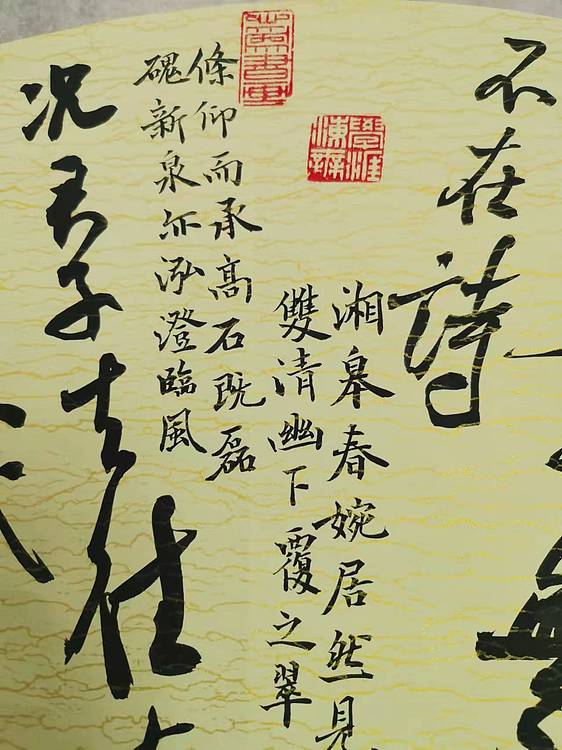 不在詩
湘皋春婉居然見
雙清幽下覆之翠
條仰而承高石既磊
磈新泉亦泓澄臨風
况君子去住